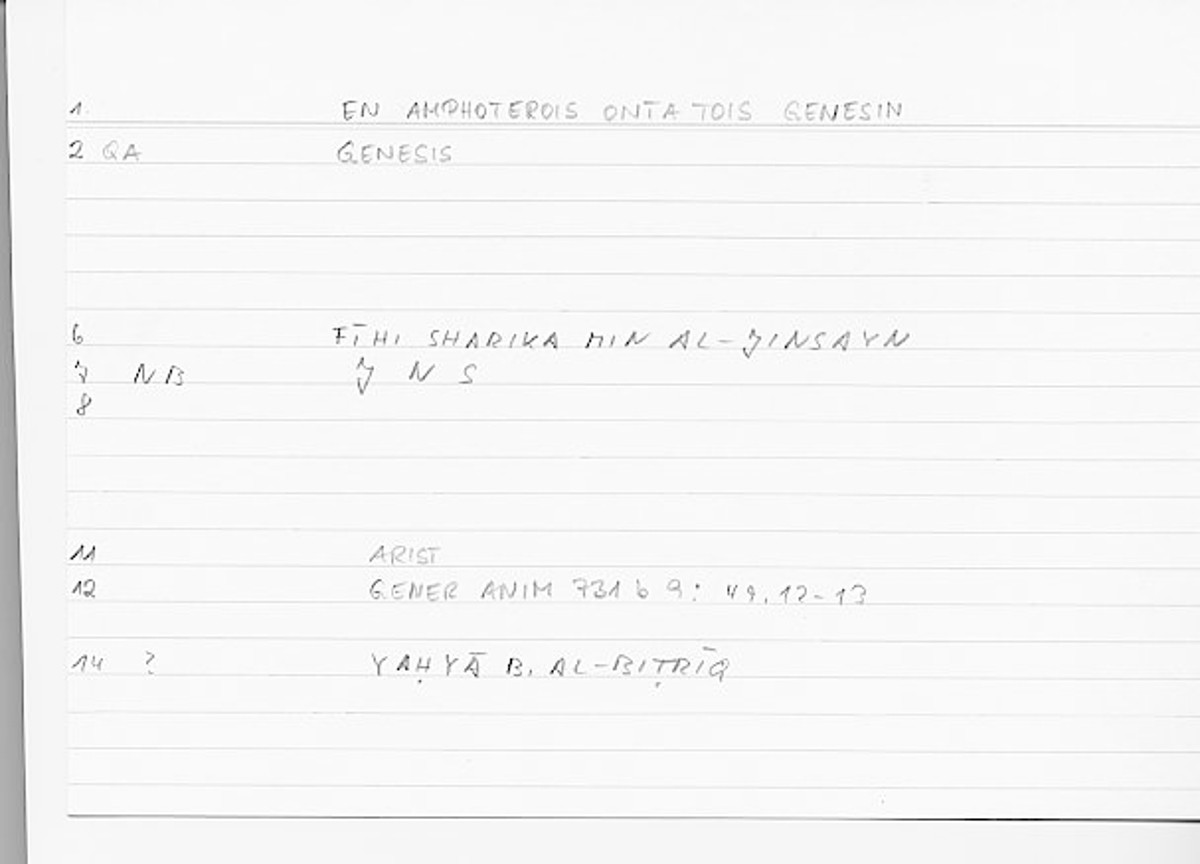 1. EN AMPHOTEROIS ONTA TOIS GENESIN
2 QA GENESIS
6 FĪHI SHARIKA MIN AL-JINSAYN
7 NB J N S
8
11 ARIST
12 GENER ANIM 731 b 9: 49,12-13
14 ? YAḤYĀ B. AL-BIṬRĪQ